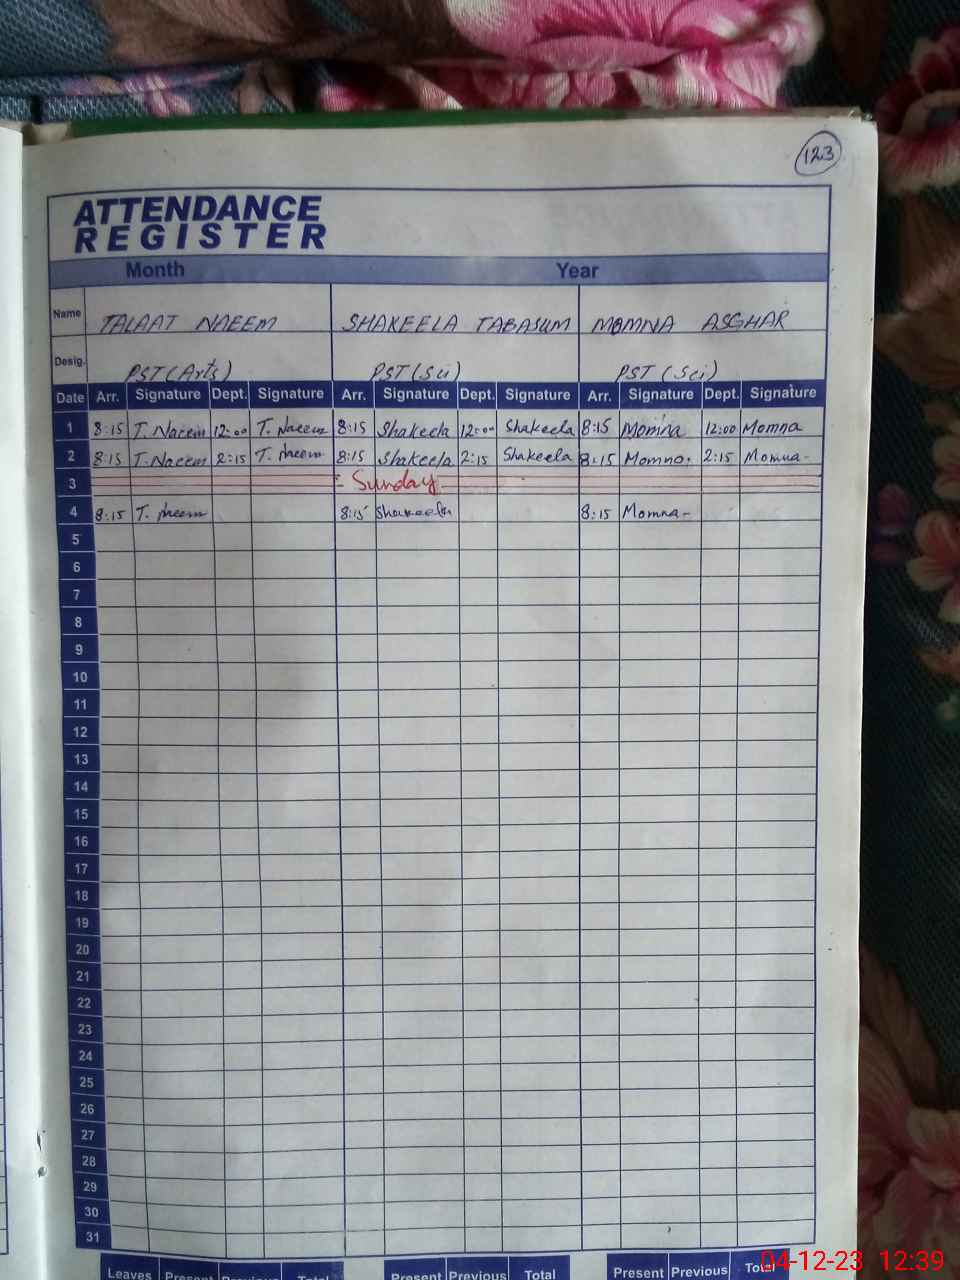 123
ATTENDANCE
REGISTER
Month Year
Name TALAAT NAEEM SHAKEELA TABASUM MOMNA ASGHAR
Desig. PST (Arts) PST (Sci) PST (Sci)
Date Arr. Signature Dept. Signature Arr. Signature Dept. Signature Arr. Signature Dept. Signature
1 8:15 T. Naeem 12:00 T. Naeem 8:15 Shakeela 12:00 Shakeela 8:15 Momna 12:00 Momna
2 8:15 T. Naeem 2:15 T. Naeem 8:15 Shakeela 2:15 Shakeela 8:15 Momna 2:15 Momna
3 Sunday
4 8:15 T. Naeem 8:15 Shakeela 8:15 Momna
5
6
7
8
9
10
11
12
13
14
15
16
17
18
19
20
21
22
23
24
25
26
27
28
29
30
31
Leaves Present Previous Total Present Previous Total Present Previous Total
04-12-23 12:39